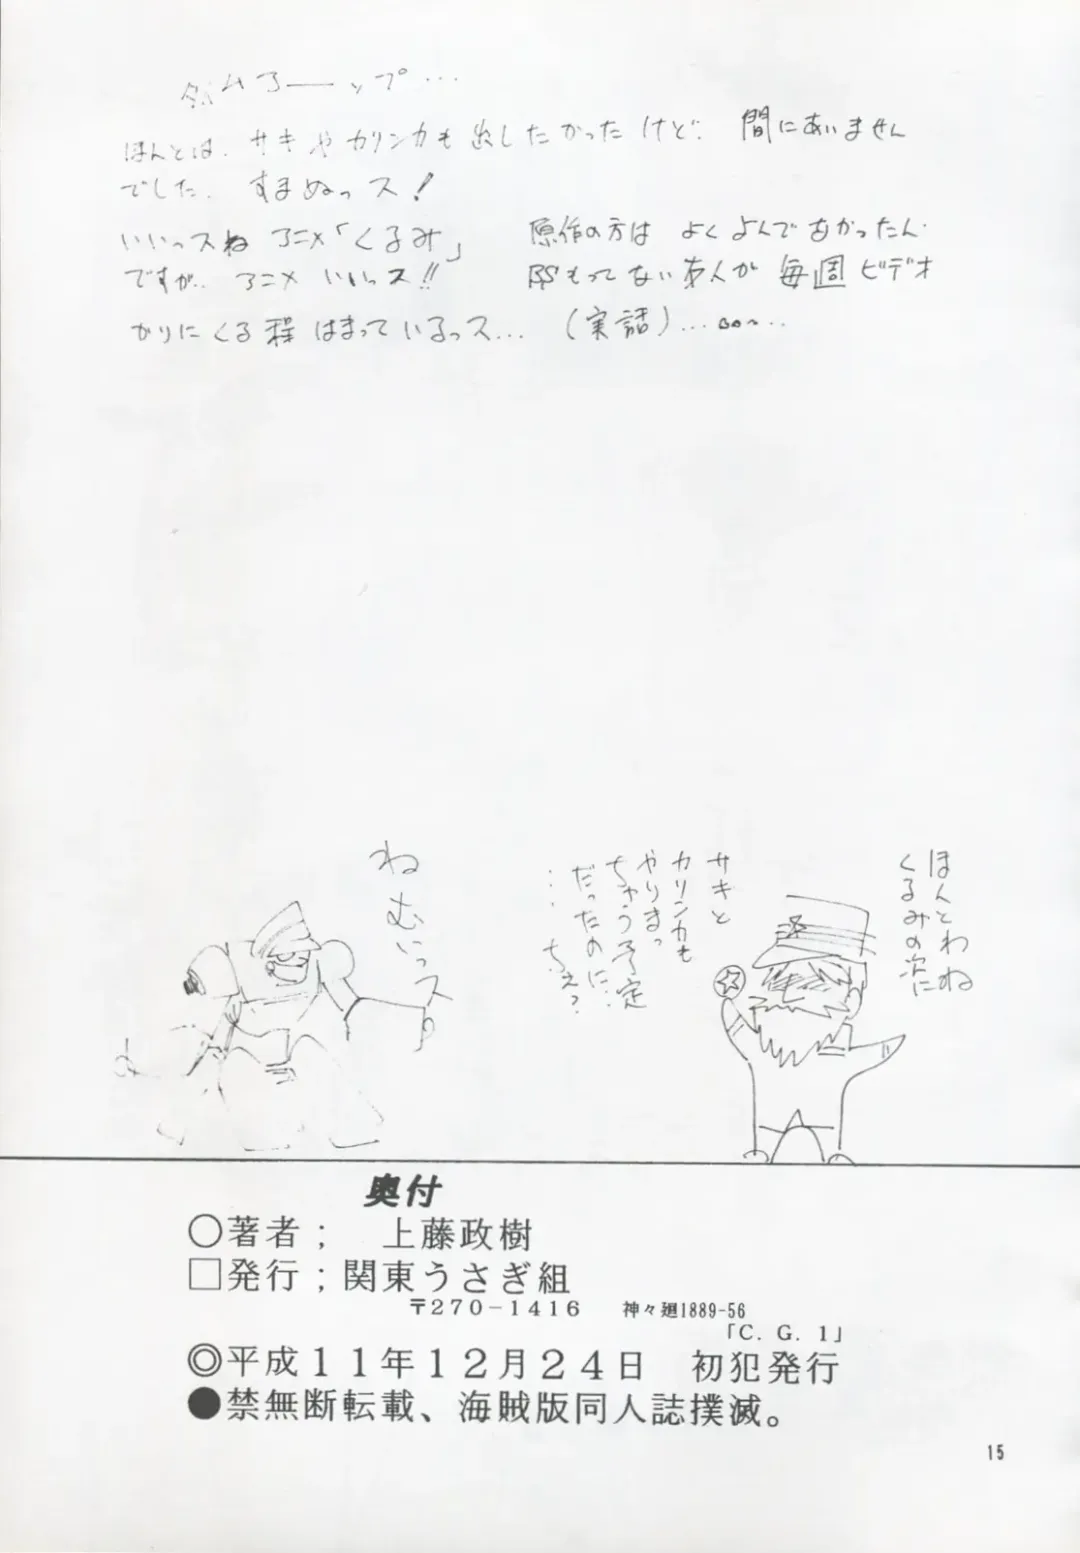 タイムアーップ…
ほんとは、サキやカリンカも出したかったけど、間にあいません
でした、すまぬっス!
いいっスねアニメ「くるみ」 原作の方はよくよんでなかったん
ですが、アニメいいっス!! BSもってない友人が毎週ビデオ
かりにくる程はまっているっス…(実話)…
ねむいっス
ほんとわね
くるみの次に
サキと
カリンカも
やりまっ
ちゃう予定
だったのに…
…ちぇっ
奥付
○著者; 上藤政樹
□発行;関東うさぎ組
〒270-1416 神々廻1889-56
「C.G.1」
◎平成11年12月24日 初犯発行
●禁無断転載、海賊版同人誌撲滅。
15